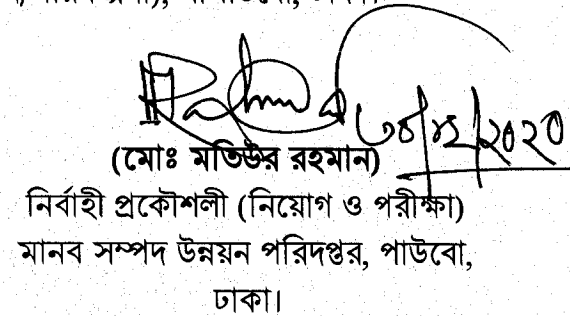 ৩০/১২/২০২০
(মোঃ মতিউর রহমান)
নির্বাহী প্রকৌশলী (নিয়োগ ও পরীক্ষা)
মানব সম্পদ উন্নয়ন পরিদপ্তর, পাউবো,
ঢাকা।